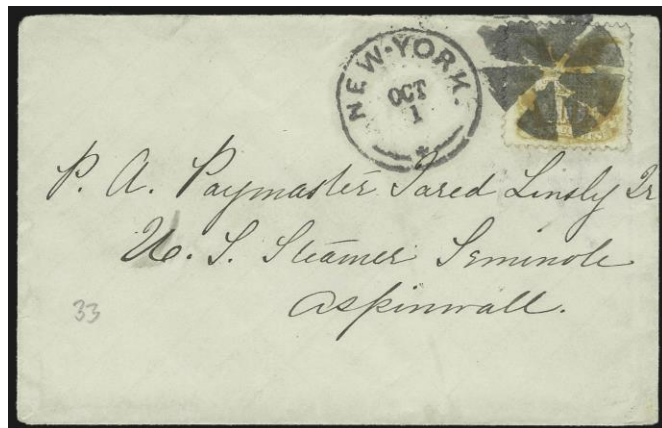 NEW-YORK.
OCT
1
P. A. Paymaster Jared Linsly Jr
U. S. Steamer Seminole
Aspinwall.
33